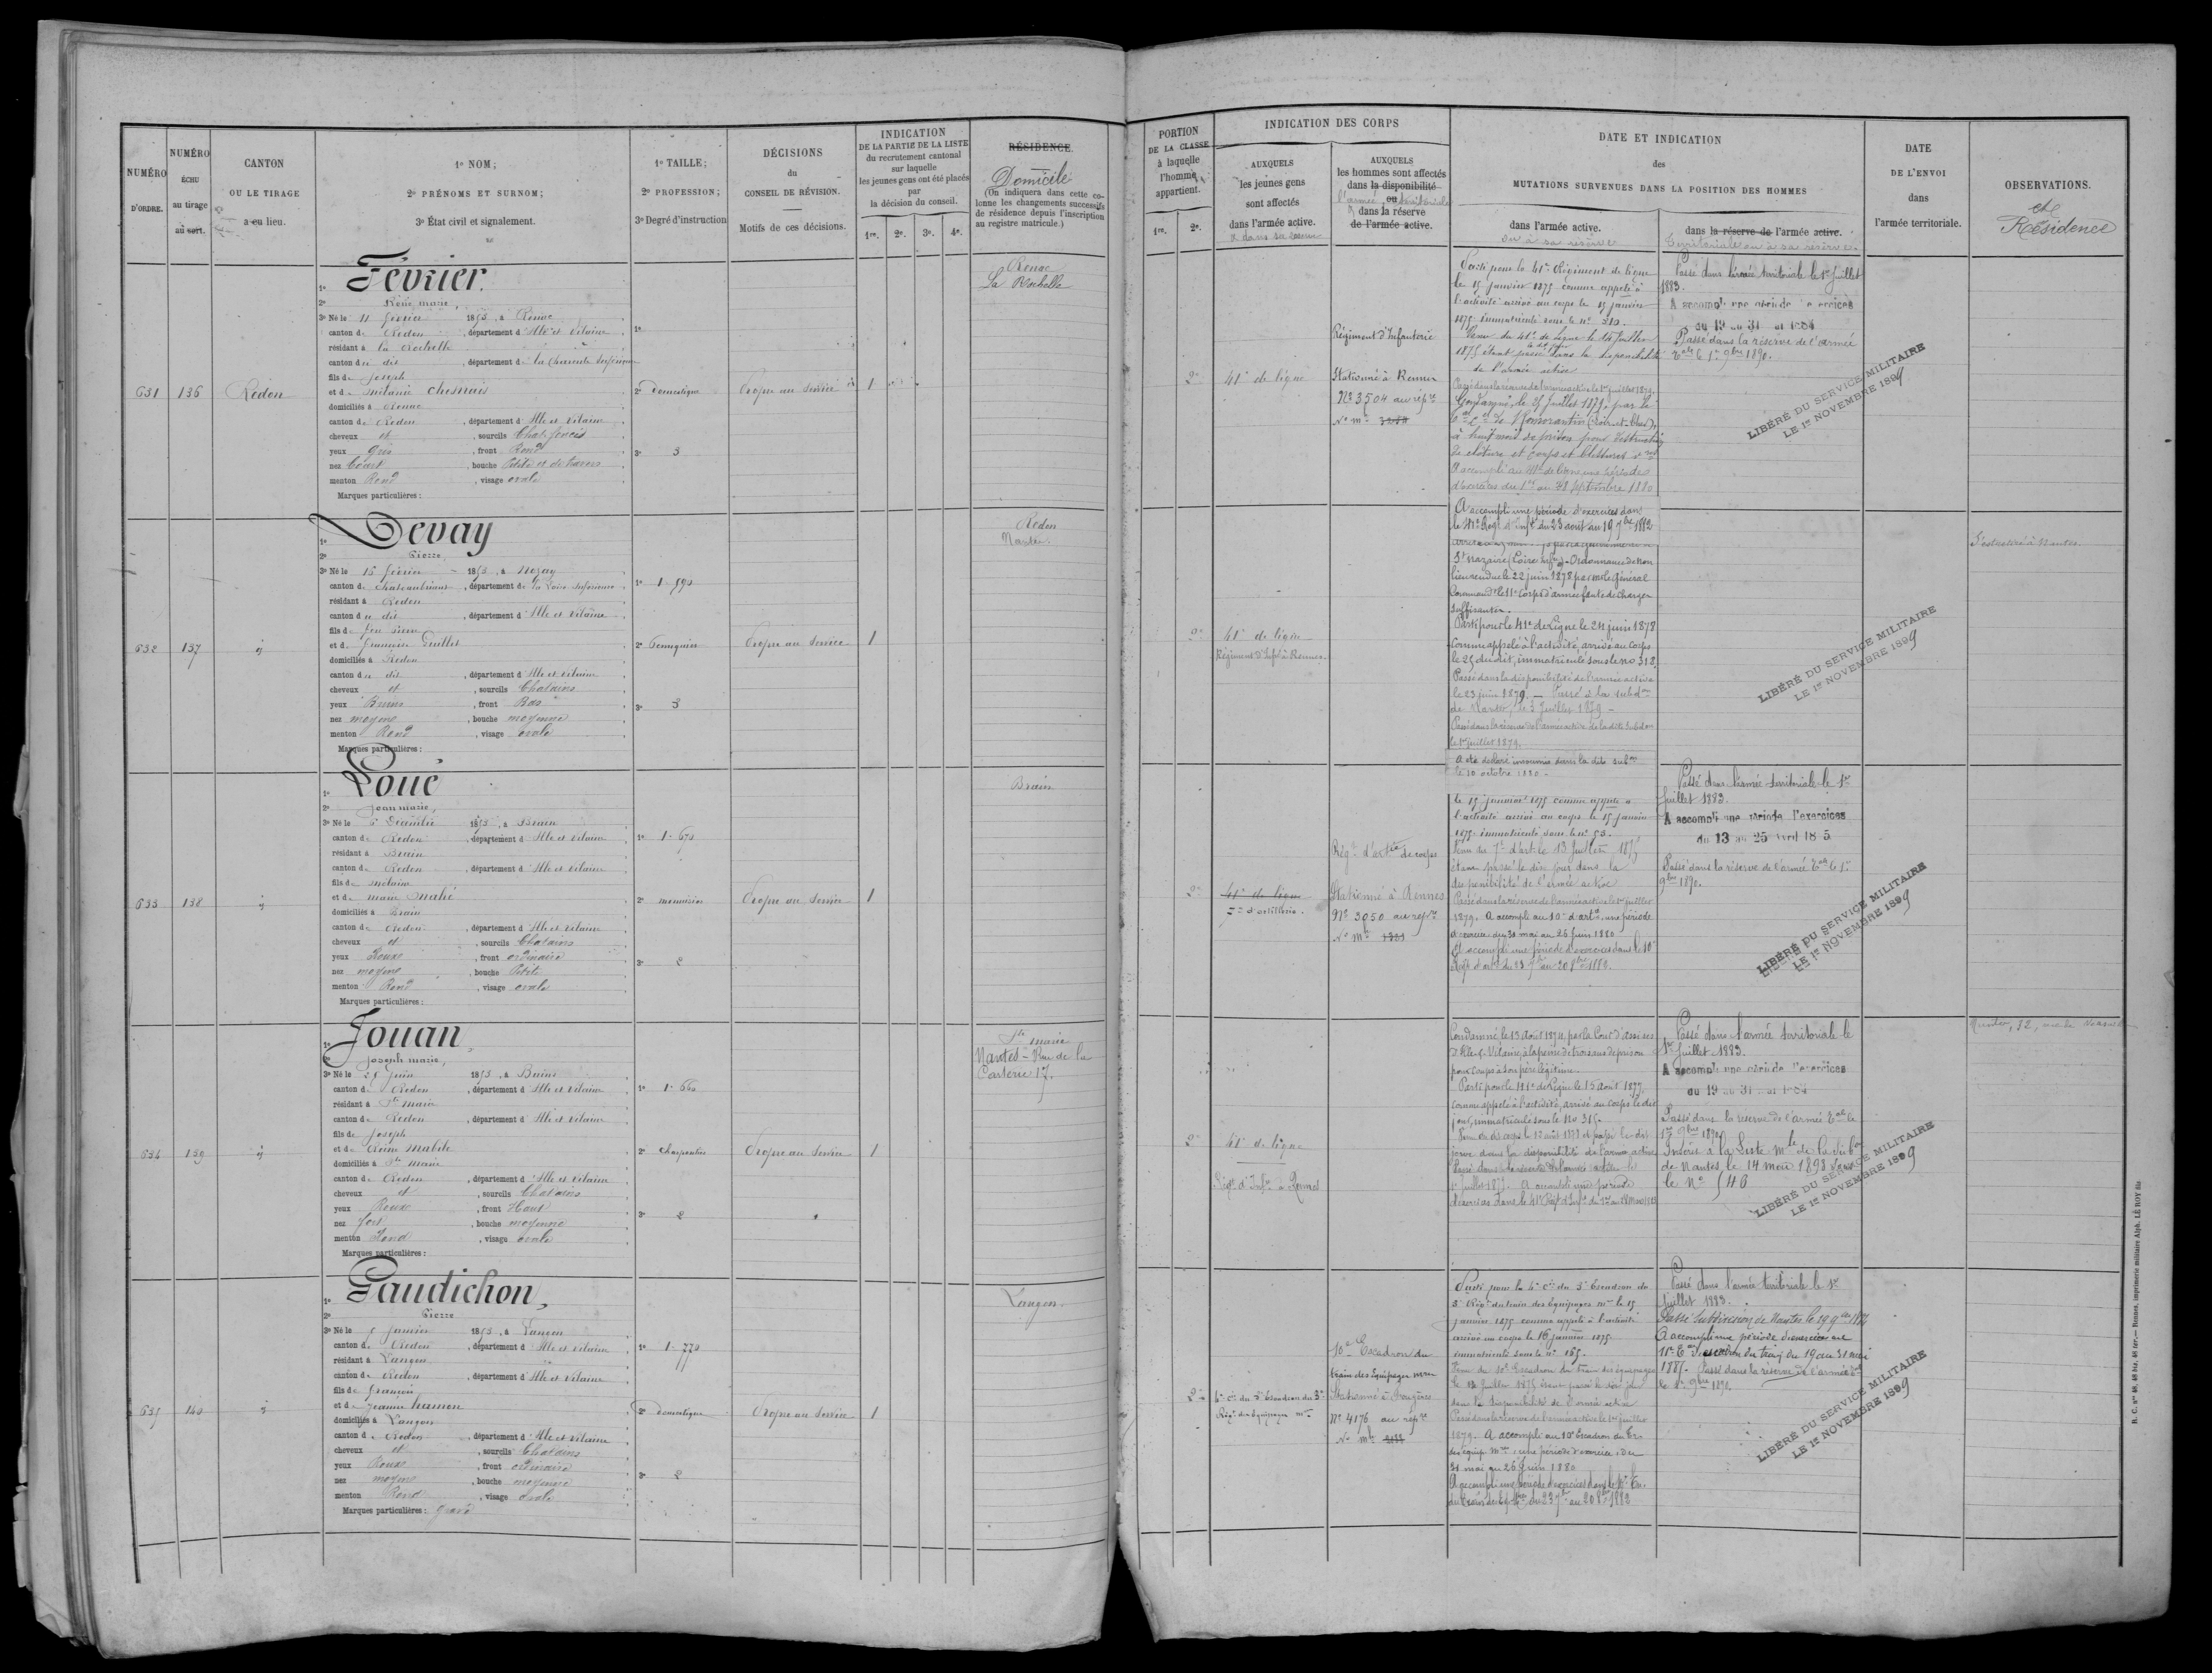 NUMÉRO
D'ORDRE.
NUMÉRO
ÉCHU
au tirage
au sort.
CANTON
OU LE TIRAGE
a eu lieu.
1º NOM;
2º PRÉNOMS ET SURNOM;
3º État civil et signalement.
1º TAILLE;
2º PROFESSION;
3º Degré d'instruction
DÉCISIONS
du
CONSEIL DE RÉVISION.
Motifs de ces décisions.
INDICATION
DE LA PARTIE DE LA LISTE
du recrutement cantonal
sur laquelle
les jeunes gens ont été placés
par
la décision du conseil.
1re. 2e. 3e. 4e.
RÉSIDENCE.
Domicile
(On indiquera dans cette co-
lonne les changements successifs
de résidence depuis l'inscription
au registre matricule.)
631
136
Redon
Février.
1º
2º René marie,
3º Né le 11 février 1853, à Renac
canton de Redon, département d'Ille et Vilaine
résidant à la Rochelle
canton du dit, département de la Charente Inférieure
fils de Joseph
et de mélanie Chesnais
domiciliés à Renac
canton de Redon, département d'Ille et Vilaine
cheveux et, sourcils Chat. foncés
yeux Gris, front Rond
nez Court, bouche Petite et de travers
menton Rond, visage ovale
Marques particulières :
1º
2º Domestique
3º 3
Propre au service
1
Renac
La Rochelle
632
137
Devay
1º
2º Pierre
3º Né le 15 février 1853, à Nozay
canton de Chateaubriant, département de la Loire Inférieure
résidant à Redon
canton du dit, département d'Ille et Vilaine
fils de feu Pierre
et de françoise
domiciliés à Redon
canton du dit, département d'Ille et Vilaine
cheveux et, sourcils Chatains
yeux Bruns, front Bas
nez moyen, bouche moyenne
menton Rond, visage ovale
Marques particulières :
1º 1.590
2º
3º 3
Propre au Service
1
Redon
Nantes.
633
138
Loué
1º
2º Jean marie,
3º Né le 6 Décembre 1853, à Brain
canton de Redon, département d'Ille et Vilaine
résidant à Brain
canton de Redon, département d'Ille et Vilaine
fils de
et de marie Mahé
domiciliés à Brain
canton de Redon, département d'Ille et Vilaine
cheveux et, sourcils Chatains
yeux Roux, front ordinaire
nez moyen, bouche Petite
menton Rond, visage ovale
Marques particulières :
1º 1.670
2º menuisier
3º 2
Propre au Service
1
Brain
634
139
Jouan,
1º
2º Joseph marie,
3º Né le 25 Juin 1853, à Bains
canton de Redon, département d'Ille et Vilaine
résidant à Ste marie
canton de Redon, département d'Ille et Vilaine
fils de Joseph
et de Reine Mabile
domiciliés à Ste marie
canton de Redon, département d'Ille et Vilaine
cheveux et, sourcils Chatains
yeux Roux, front Haut
nez fort, bouche moyenne
menton Rond, visage ovale
Marques particulières :
1º 1.660
2º Charpentier
3º 2
Propre au Service
1
Ste marie
Nantes - Rue de la
Carterie 17.
635
140
Gaudichon,
1º
2º Pierre
3º Né le 5 Janvier 1853, à Langon
canton de Redon, département d'Ille et Vilaine
résidant à Langon
canton de Redon, département d'Ille et Vilaine
fils de françois
et de Jeanne hamon
domiciliés à Langon
canton de Redon, département d'Ille et Vilaine
cheveux et, sourcils Chatains
yeux Roux, front ordinaire
nez moyen, bouche moyenne
menton Rond, visage ovale
Marques particulières : Gravé
1º 1.770
2º domestique
3º 2
Propre au Service
1
Langon.
PORTION
DE LA CLASSE
à laquelle
l'homme
appartient.
1re. 2e.
INDICATION DES CORPS
AUXQUELS
les jeunes gens
sont affectés
dans l'armée active.
& dans sa réserve
AUXQUELS
les hommes sont affectés
dans la disponibilité
ou
l'armée territoriale
dans la réserve
de l'armée active.
DATE ET INDICATION
des
MUTATIONS SURVENUES DANS LA POSITION DES HOMMES
dans l'armée active.
ou à sa réserve
dans la réserve de l'armée active.
territoriale ou à sa réserve.
DATE
DE L'ENVOI
dans
l'armée territoriale.
OBSERVATIONS.
et
Résidence
2e
41e de ligne
Régiment d'Infanterie
Stationné à Rennes
Nº 3504 au rép.re
Nº m.le
Parti pour le 41e Régiment de ligne
le 15 janvier 1875 comme appelé à
l'activité arrivé au corps le 15 janvier
1875 immatriculé sous le nº 310.
Venu du 41e de Ligne le 14 Juillet
1875 étant passé le dit jour dans la disponibilité
de l'armée active
Passé dans la réserve de l'armée active le 1er juillet 1879.
Condamné, le 25 Juillet 1879, par le
de Romorantin (Loir-et-Cher),
à huit mois de prison pour destruction
de clôture et coups et blessures vres
A accompli au 41e de ligne une période
d'exercices du 1er au 28 septembre 1880
Passé dans l'armée territoriale le 1er Juillet
1883.
A accompli une période d'exercices
du 19 au 31 mai 1884
Passé dans la réserve de l'armée
Tale le 1er 9bre 1890.
LIBÉRÉ DU SERVICE MILITAIRE
LE 1er NOVEMBRE 1899
2e
41e de ligne
Régiment d'Infie à Rennes.
A accompli une période d'exercices dans
le 41e Régt d'Infie du 23 août au 19 7bre 1882
St Nazaire (Loire Infre) - Ordonnance de non
lieu rendue le 22 juin 1878 par mr le Général
Command' le 11e Corps d'armée faute de charges
suffisantes.
Parti pour le 41e de Ligne le 24 juin 1878
comme appelé à l'activité, arrivé au corps
le 25 du dit, immatriculé sous le no 313.
Passé dans la disponibilité de l'armée active
le 23 juin 1879. — Passé à la subdon
de Nantes, le 3 Juillet 1879 —
Passé dans la réserve de l'armée active de la dite Subdon
le 1er juillet 1879.
A été déclaré insoumis dans la dite subon
le 10 octobre 1880.
LIBÉRÉ DU SERVICE MILITAIRE
LE 1er NOVEMBRE 1899
à Nantes.
2e
41e de ligne
7e d'artillerie.
Régt d'artie de corps
Stationné à Rennes
Nº 3050 au rép.re
Nº m.le 1381
le 15 janvier 1875 comme appelé à
l'activité arrivé au corps le 15 janvier
1875 immatriculé sous le nº 53.
Venu du 7e d'art. le 13 Juillet 1875
étant passé le dit jour dans la
disponibilité de l'armée active
Passé dans la réserve de l'armée active le 1er juillet
1879. A accompli au 10e d'artie une période
d'exercices du 30 mai au 26 Juin 1880
A accompli une période d'exercices dans le 10e
Régt d'artie du 23 7bre au 20 8bre 1882.
Passé dans l'armée territoriale le 1er
Juillet 1883.
A accompli une période d'exercices
du 13 au 25 avril 1885
Passé dans la réserve de l'armée Tale le 1er
9bre 1890.
LIBÉRÉ DU SERVICE MILITAIRE
LE 1er NOVEMBRE 1899
2e
41e de ligne
Régt d'Infie à Rennes
Condamné le 13 Août 1874, par la Cour d'assises
d'Ille-&-Vilaine, à la peine de trois ans de prison
pour coups à son père légitime.
Parti pour le 41e de Ligne le 15 août 1877
comme appelé à l'activité, arrivé au corps le dit
jour, immatriculé sous le No 315.
Venu du dit corps le 12 août 1878 et passé le dit
jour dans la disponibilité de l'armée active
Passé dans la réserve de l'armée active le
1er Juillet 1879. A accompli une période
d'exercices dans le 41e Régt d'Infie du 1er au 28 Mars 1881
Passé dans l'armée territoriale le
1er Juillet 1883.
A accompli une période d'exercices
du 19 au 31 mai 1884
Passé dans la réserve de l'armée Tale le
1er 9bre 1890
Inscrit à la Liste mle de la Subon
de Nantes le 14 mai 1898 sous
le Nº 546
LIBÉRÉ DU SERVICE MILITAIRE
LE 1er NOVEMBRE 1899
Nantes, 32, rue de
2e
4e Cie du 3e Escadron du 3e
Régt des équipages mres
10e Escadron du
train des équipages mres
Stationné à Fougères
Nº 4176 au rép.re
Nº mle
Parti pour la 4e Cie du 3e Escadron du
3e Régt du train des équipages mres le 15
janvier 1875 comme appelé à l'activité
arrivé au corps le 16 janvier 1875
immatriculé sous le nº 165.
Venu du 10e Escadron du train des équipages
le 12 Juillet 1875 étant passé le dit jour
dans la disponibilité de l'armée active
Passé dans la réserve de l'armée active le 1er juillet
1879. A accompli au 10e Escadron du tr.
des équip. mres, une période d'exercices du
31 mai au 26 Juin 1880
A accompli une période d'exercices dans le
du 23 7bre au 20 8bre 1882
Passé dans l'armée territoriale le 1er
Juillet 1883.
Passé Subdivision de Nantes le 19 9bre 1884
A accompli une période d'exercices au
11e Eon Tal du train du 19 au 31 mai
1885. Passé dans la réserve de l'armée Tale
le 1er 9bre 1890.
LIBÉRÉ DU SERVICE MILITAIRE
LE 1er NOVEMBRE 1899
Rennes, imprimerie militaire Alph. LE ROY fils